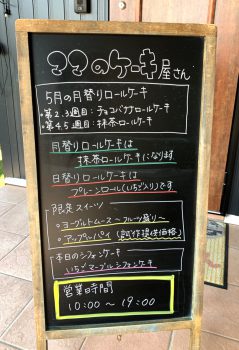 ママのケーキ屋さん
5月の月替りロールケーキ
・第2.3週目：チョコバナナロールケーキ
・第4.5週目：抹茶ロールケーキ
月替りロールケーキは
抹茶ロールケーキになります
日替りロールケーキは
プレーンロール(いちご入り)です
限定スイーツ
・ヨーグルトムース 〜フルーツ盛り〜
・アップルパイ
本日のシフォンケーキ
いちごマーブルシフォンケーキ
営業時間
10:00〜19:00